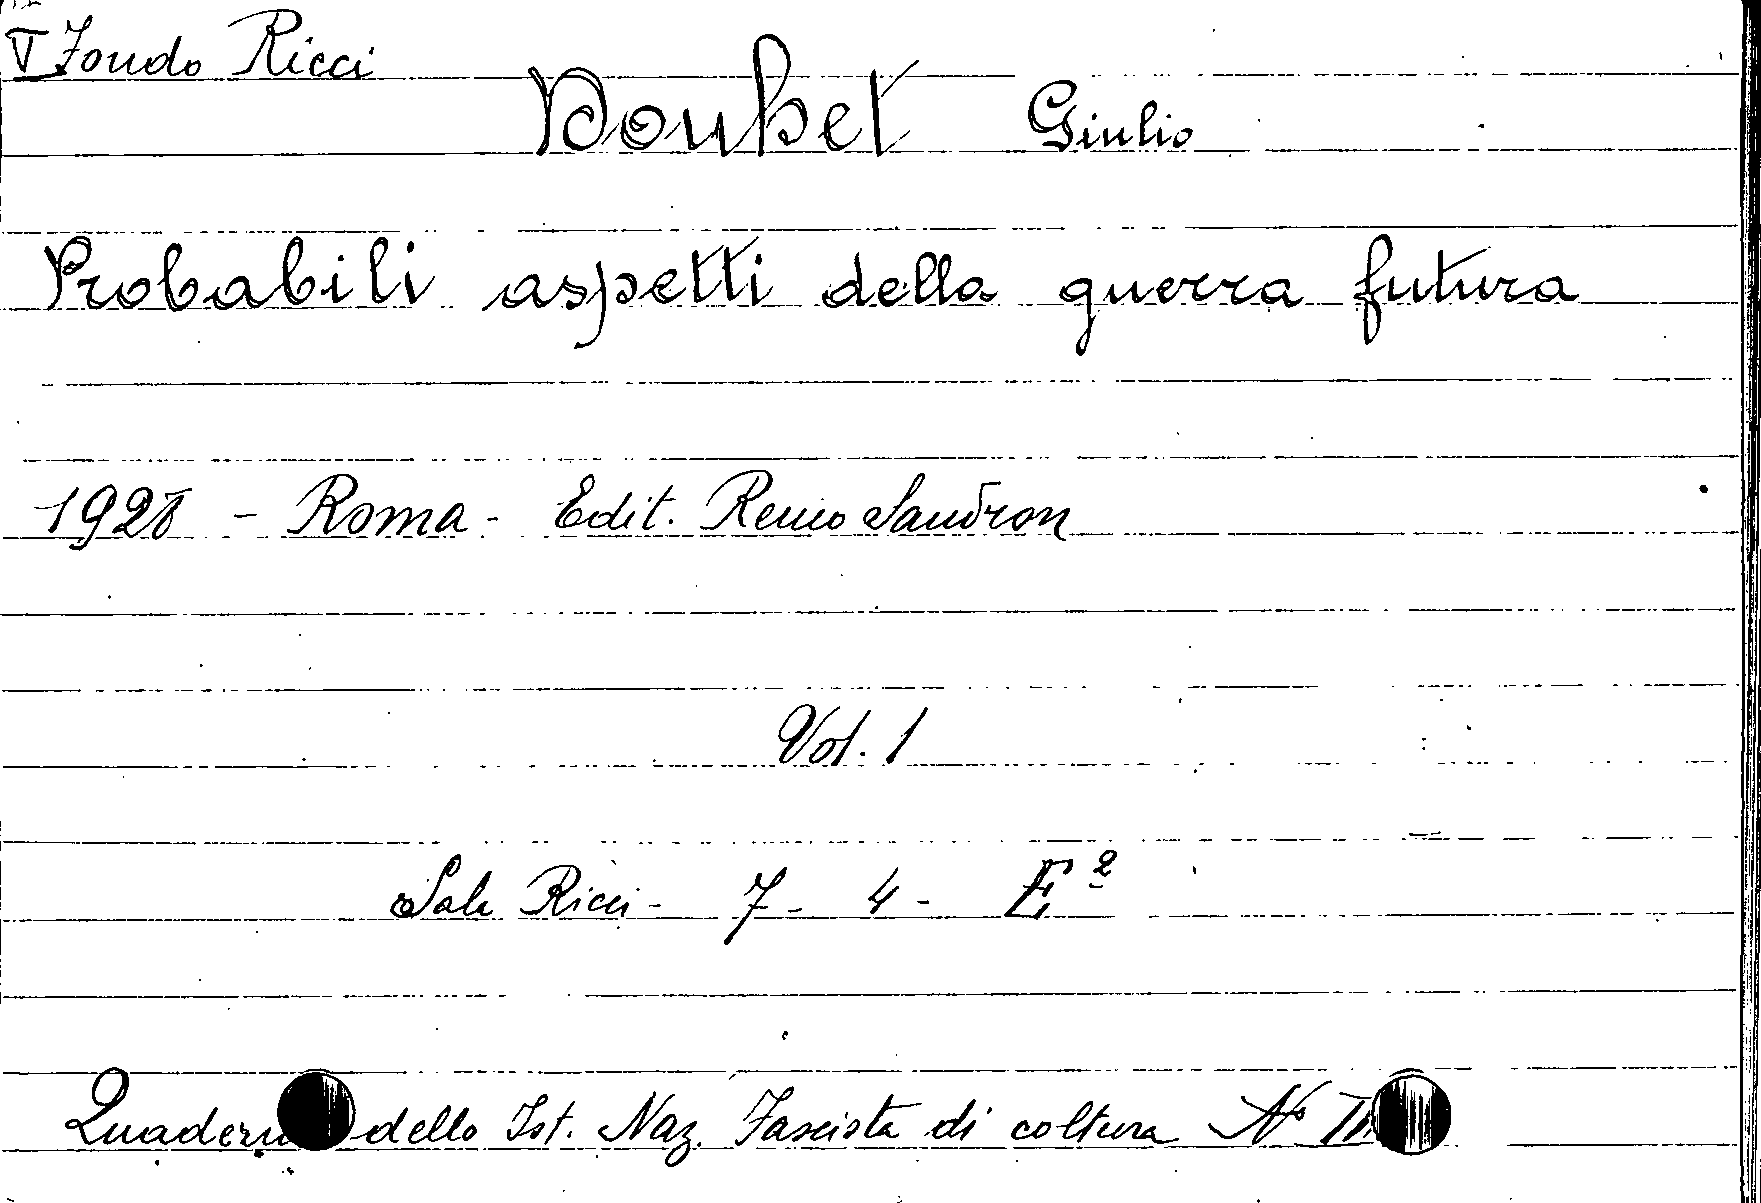 V Fondo Ricci
Douhet Giulio
Probabili aspetti della guerra futura
1928 - Roma - Edit. Remo Sandron
Vol. 1
Sala Ricci - 7 - 4 - E 2
dello Ist. Naz. Fascista di coltura N°